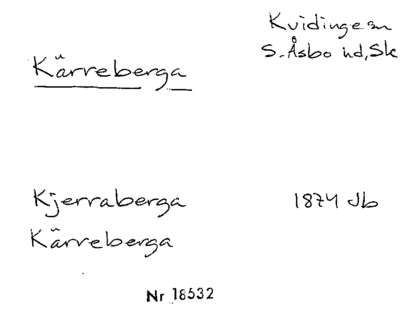 Kvidinge sn
S. Åsbo hd, Sk
Kärreberga
Kjerraberga 1874 Jb
Kärreberga
Nr 18532